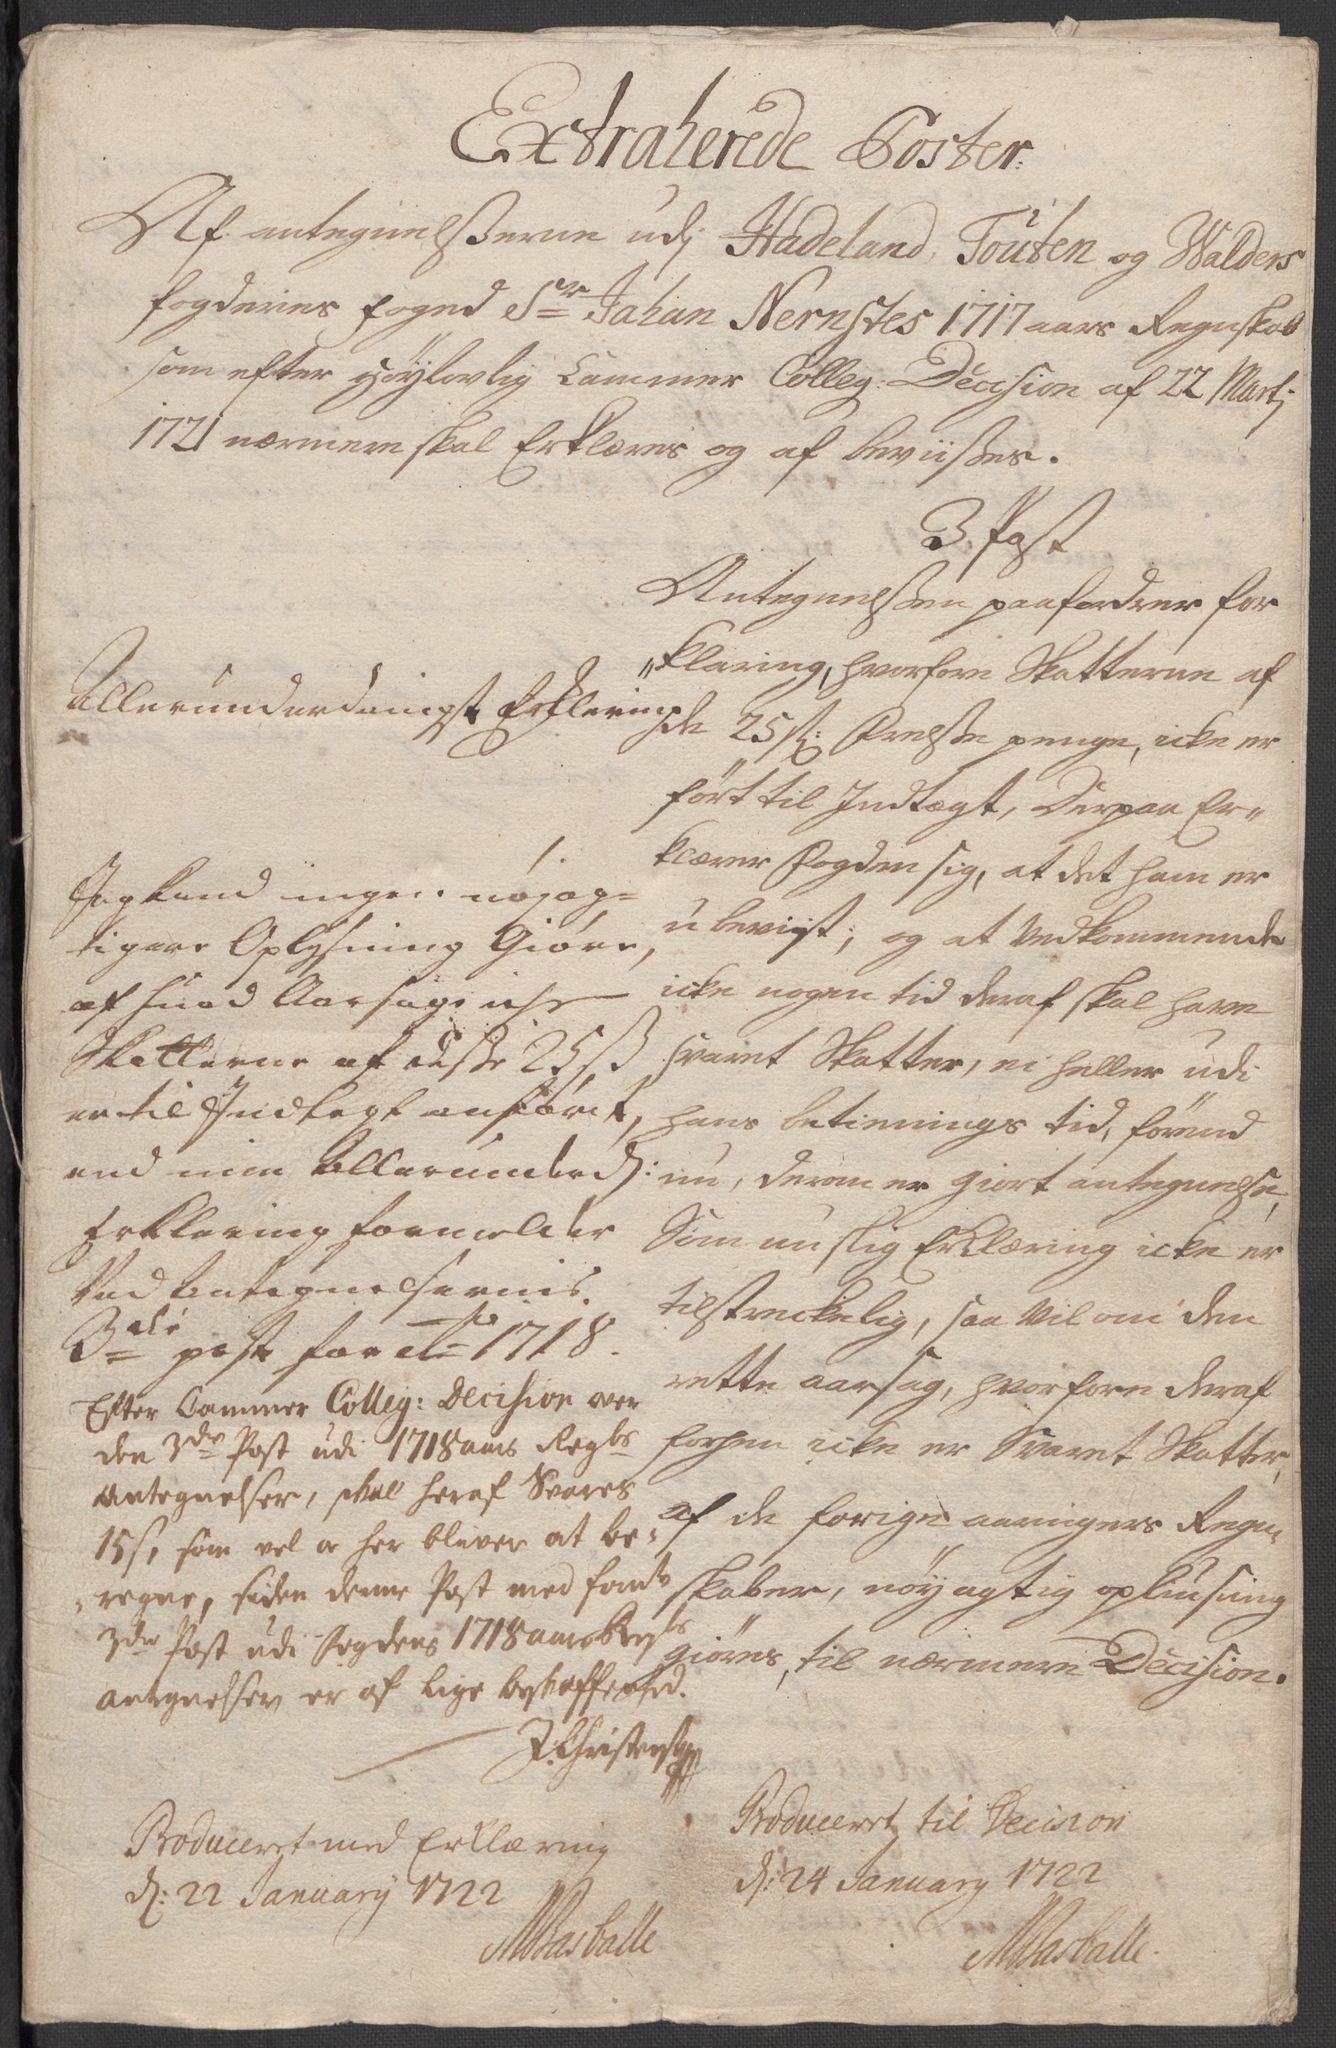 Extraherede Poster
Af antegnelsserne udj Hadeland, Toten og Walders
fogderies foged Sr Johan Nernstes 1717 aars Regnskab
som efter Höylovlig Cammer Colleg: Decision af 22 Martj
1721 nærmere skal Erklæres og af beviisses.
3. Post
Antegnelssen paafordrer for
klaring, hvorfore Skatterne af
de 25 s: Ørelsse penge, icke er
ført til Indtægt, Derpaa Er-
klærer Fogden sig, at det ham er
ubevist; og at Vedkommende
icke nogen tid deraf skal have
svaret Skatter, ei heller udi
hans betienings tid, förend
nu, derom er giort antegnelse,
Som nu slig Erklæring icke er
tilstreckelig, saa vil om den
rette aarsag, hvorfore deraf
forhen icke er Svaret Skatter,
af de forige aaringers Regn-
skaber, nöyagtig oplüsning
giöres, til nærmere Decision.
Allerunderdanigst Erklering
1.
Jeg kand ingen nöjag-
tigere Oplysning Giöre,
af hvad Aarsag iche
Skatterne af disse 25 s
er til Indtegt anført,
end min Allerunderd:
Erklering formelder
Ved Antegnelsernis
3die post for Ao 1718.
Efter Cammer Colleg: Decision over
den 3die Post udi 1718 aars Regbs
Antegnelser, skal heraf Svares
15 s, som vel og her bliver at be-
regne, siden denne Post med
3die Post udi fogdens 1718 aars Regbs
antegnelser er af lige beskaffenhed.
J. Christensen
Produceret med Erklæring
d: 22 January 1722
MBasballe
Produceret til Decision
d: 24 January 1722
MBasballe